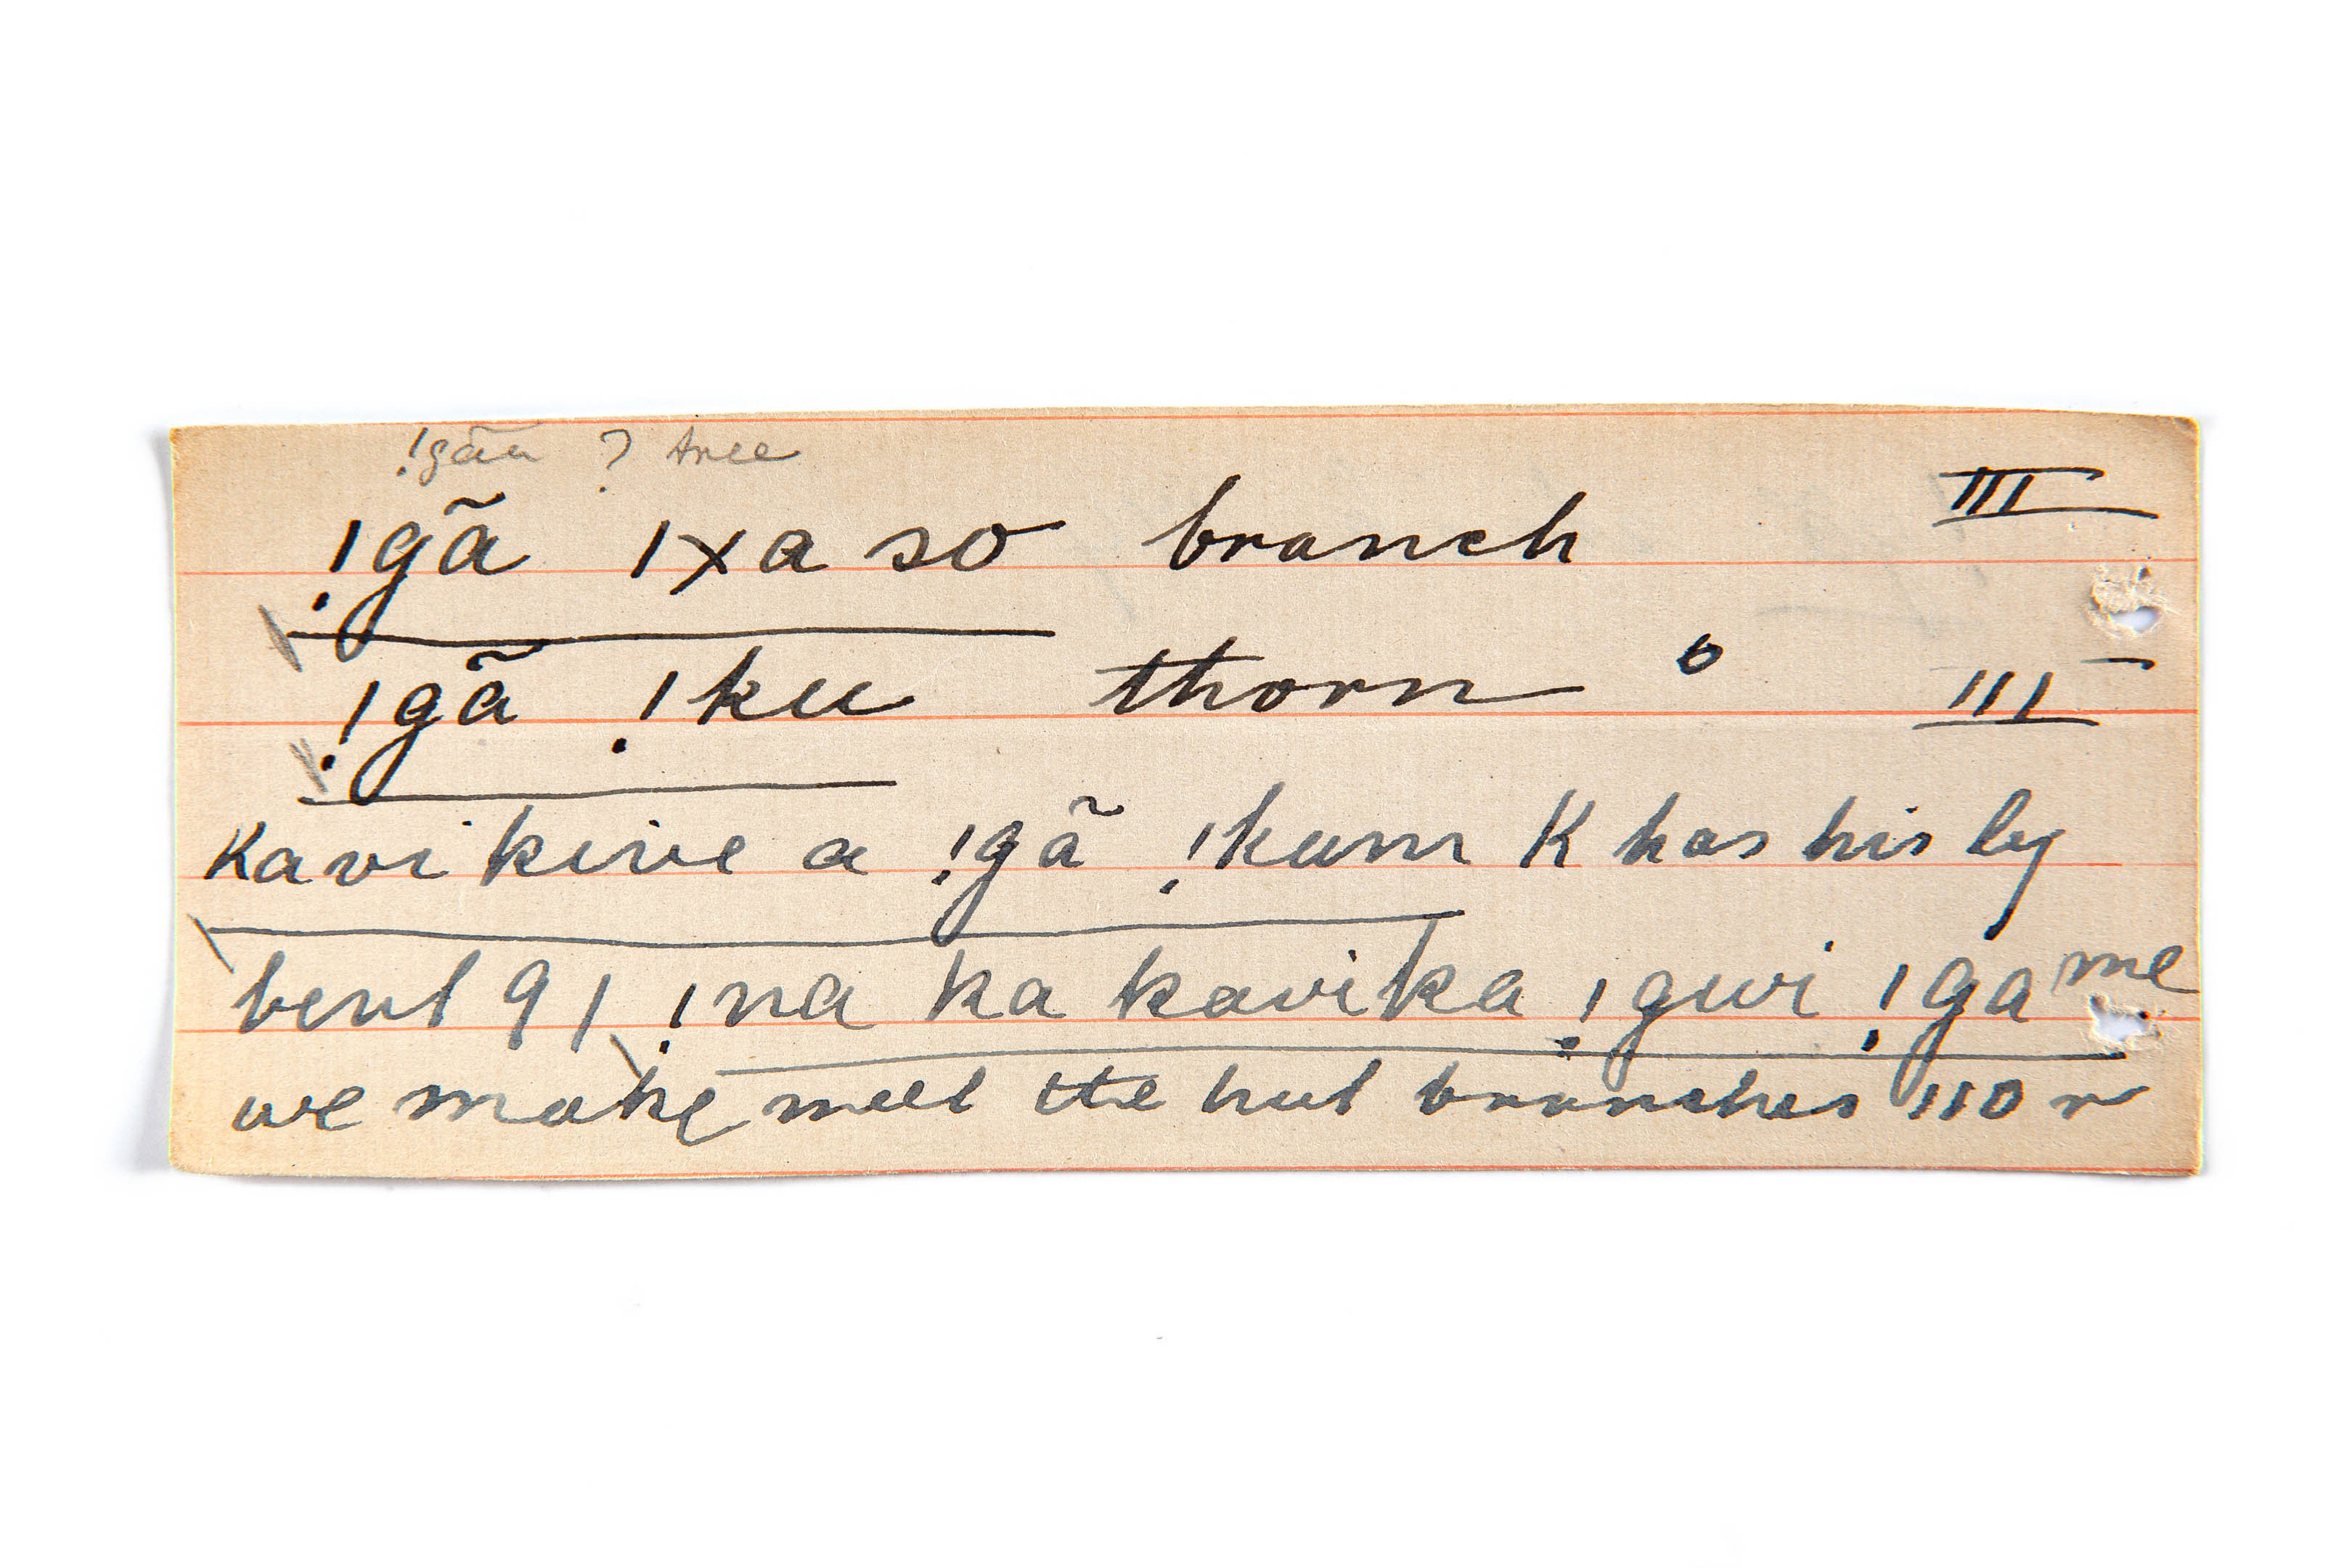 !gãã ? tree
!gã |xa so branch III
!gã !ku thorn o III
Kavi kive a !gã !kum K has his leg
bent 91 !na ka kavi ka !gwi !ga me
we make meet the hut branches 110 r